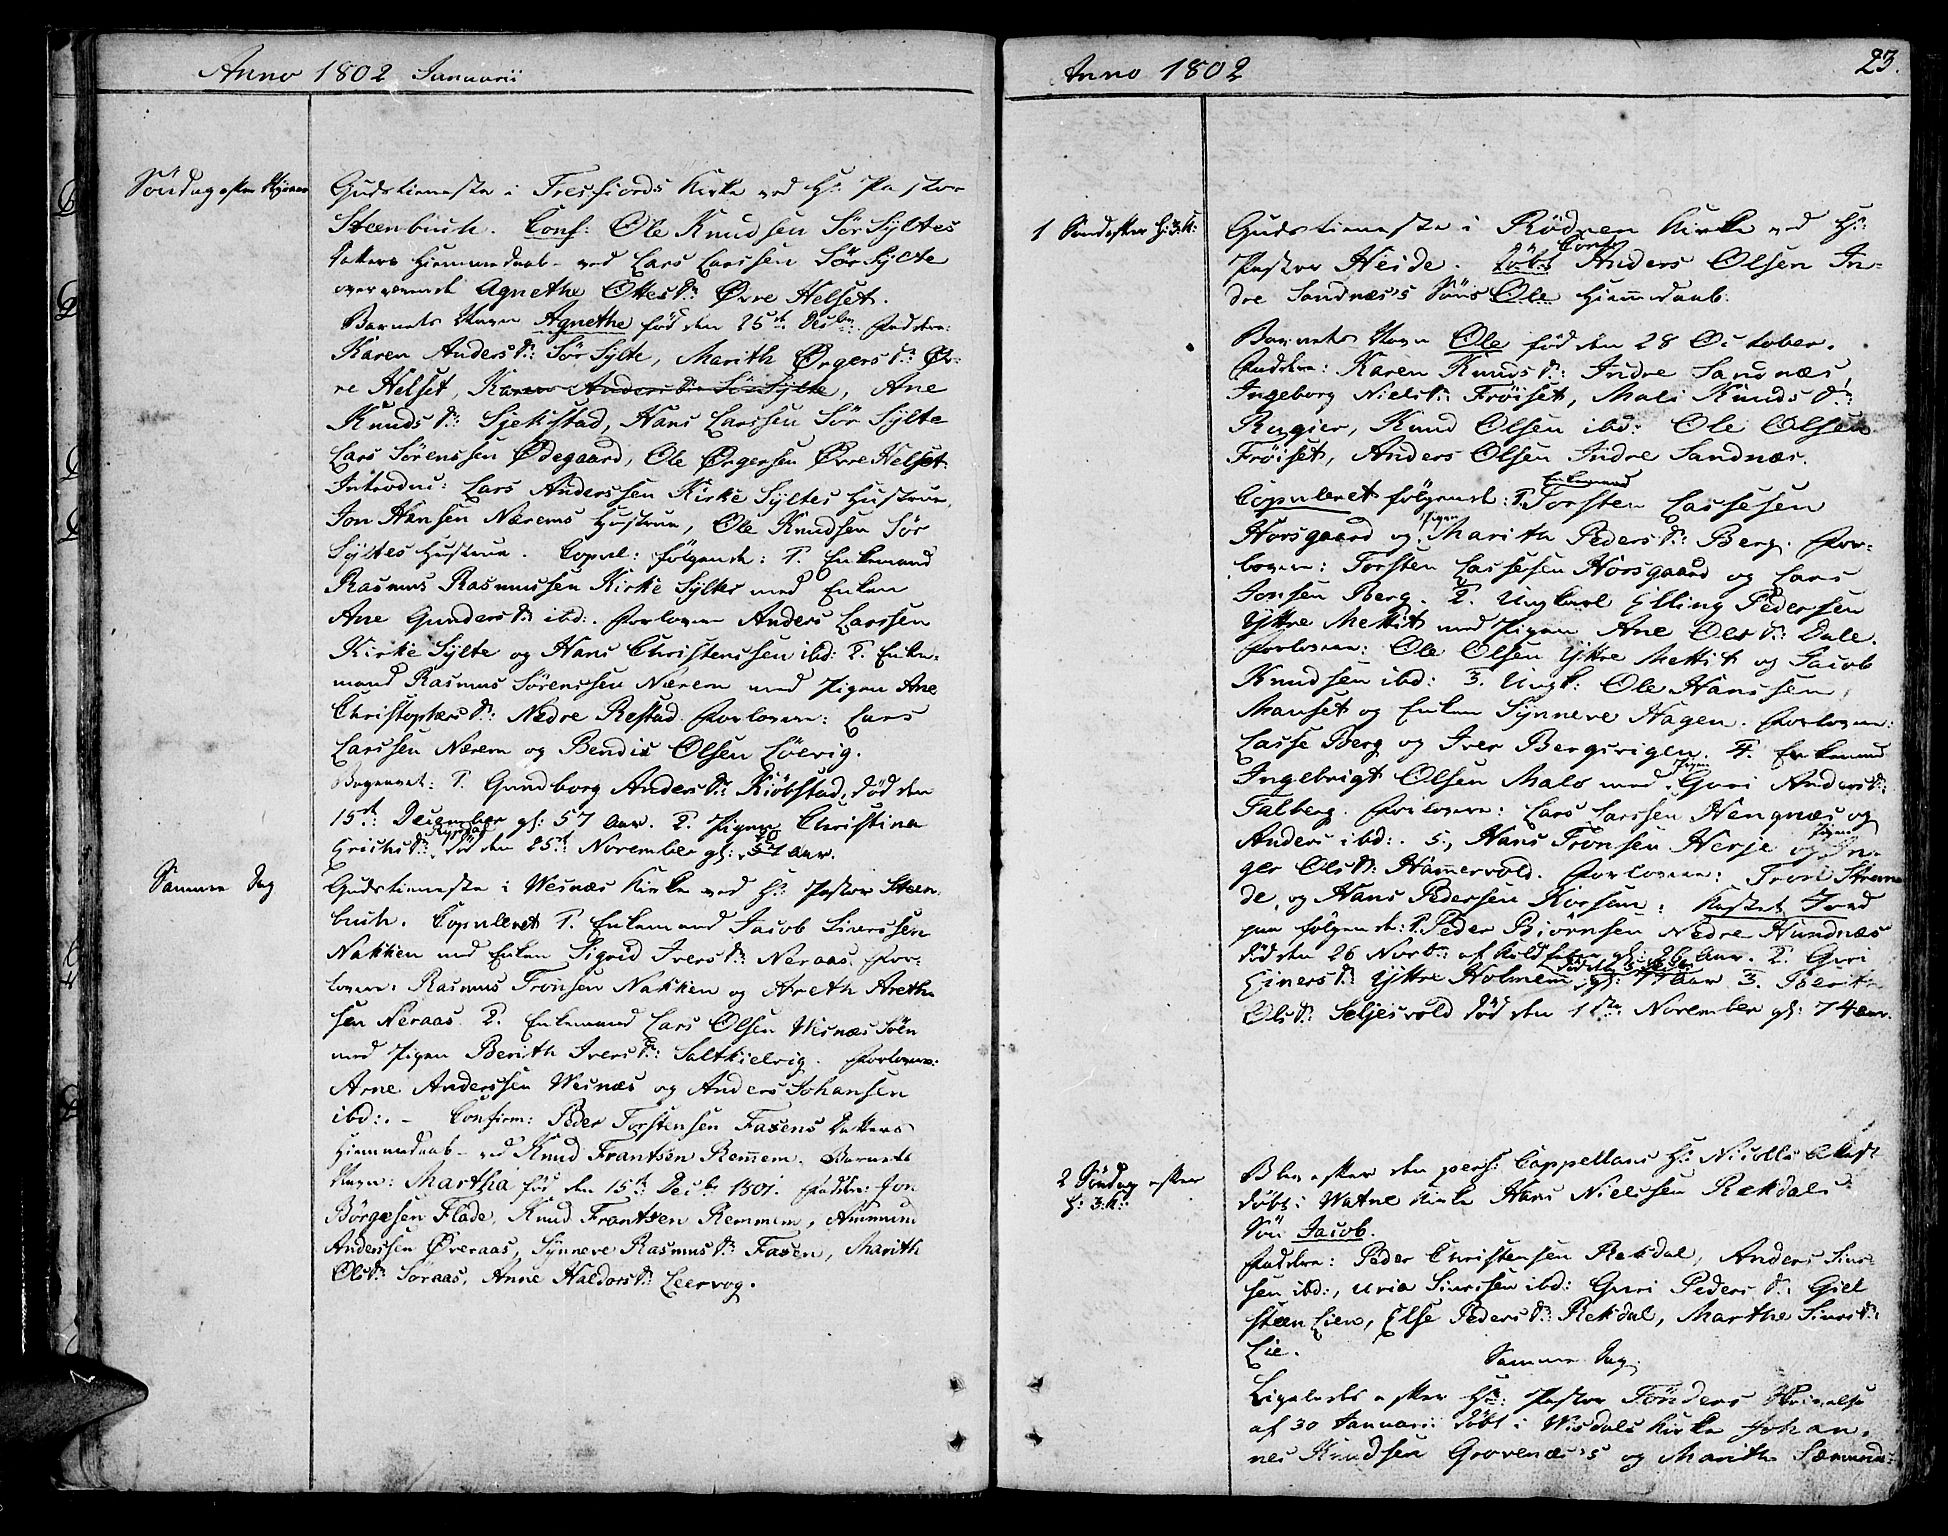 Anno 1802 Januarii
Søndag efter Nyeaar
Gudstienneste i Tresfiords Kirke ved Hr. Pastor
Steenbuch. Conf: Ole Knudsen Sør Syltes
Datters Hiemmedaab ved Lars Larssen Sør Sylte
overværende Agnethe Ottesdr: Øvre Helset.
Barnets Navn Agnethe fød den 25de Decbr. Faddere:
Karen Andersdr: Sør Sylte, Marith Ørgersdr: Øv-
re Helset, Karen Andersdr: Sør Sylte, Ane
Knudsdr: Sjekstad, Hans Larssen Sør Sylte
Lars Sørenssen Ødegaard, Ole Ørgersen Øvre Helset.
Introduc: Lars Anderssen Kirke Syltes Hustrue,
Jon Hansen Nærems Hustrue, Ole Knudsen Sør
Syltes Hustrue. Copul: følgende: 1. Enkemand
Rasmus Rasmussen Kirke Syltes med Enken
Ane Gundersdr: ibd:. Forlovere Anders Larssen
Kirke Sylte og Hans Christenssen ibd: 2. Enke-
mand Rasmus Sørenssen Nærem med Pigen Ane
Christophersdr: Nedre Restad. Forlovere: Lars
Larssen Nærem og Bendix Olsen Løevig.
Begravet: 1. Gundborg Andersdr: Kiøbstad, død den
15de December gl: 57 Aar. 2. Pigen Christina
Erichsdr: død den 25de November gl: Aar.
Samme Dag
Gudstienneste i Wesnæs Kirke ved Hr. Pastor Steen-
buch. Copuleret 1. Enkemand Jacob Siverssen
Nakken med Enken Sigrid Iversdr: Neraas. For-
lovere: Rasmus Tronsen Nakken og Areth Areth-
sen Neraas. 2. Enkemand Lars Olsen Wesnæs Søen
med Pigen Berith Iversdr: Saltkielvig. Forlovere:
Arne Anderssen Wesnæs og Anders Johansen
ibd:. - Confirm: Peder Torstensen Faxens Datters
Hiemmedaab ved Knud Frantsen Remmem. Barnets
Navn: Martha fød den 15de Decbr 1801. Faddere: Jon
Børgesen Flade, Knud Frantsen Remmem, Ammund
Anderssen Øveraas, Synneve Rasmusdr: Faxen, Marith
Olsdr: Søraas, Anne Haldorsdr: Leervog.
Anno 1802
23.
1 Sønd: efter H: 3 K:
Gudstienneste i Rødven Kirke ved Hr:
Conf
Pastor Heide. Døbt Anders Olsen In-
dre Sandnæs's Søns Ole Hiemmedaab.
Barnets Navn Ole fød den 28 October.
Faddere: Karen Knudsdr: Indre Sandnæs,
Ingeborg Nielsdr: Frøiset, Mali Knudsdr:
Rugier, Knud Olsen ibd: Ole Olsen
Frøiset, Anders Olsen Indre Sandnæs.
Enkemand
Copuleret følgende: 1. Torsten Lassesen
Pigen
Horsgaard og Marith Pedersdr: Berg. For-
lovere: Torsten Lassesen Horsgaard og Lars
Jonsen Berg. 2. Ungkarl Elling Pedersen
Yttre Mettit med Pigen Ane Olesdr: Dale.
Forlovere: Ole Olsen Yttre Mettit og Jacob
Knudsen ibd: 3. Ungk: Ole Hanssen
Manset og Enken Synneve Hagen. Forlovere:
Lasse Berg og Iver Bergsvigen. 4. Enkemand
Pigen
Ingebrigt Olsen Malo med Guri Andersdr:
Talberg. Forlovere: Lars Larssen Hengnæs og
Anders ibd: . 5. Hans Tronsen Herje og
Pigen
In-
ger Olsdr: Hammervold. Forlovere: Tron Stran-
de, og Hans Pedersen Korsan: Kastet Jord
paa følgende: 1. Peder Biørnsen Nedre Hundnæs
død den 26 Novbr: af Koldfeber gl: 26 Aar. 2. Guri
Einersdr: Yttre Holmem gl: 77 Aar 3. Berit
Olsdr: Seljesvold død den 1ste November gl: 74 Aar.
2 Søndag efter
H: 3 K:
Blev efter den pers: Cappellans Hr. Nicolls Attest
døbt i Watne Kirke Hans Nielssen Rekdals
Søn Jacob.
Faddere: Peder Christensen Rekdal, Anders Siver-
sen ibd:, Uria Siverssen ibd: Guri Pedersdr: Giel
steen Lien, Else Pedersdr: Rekdal, Marthe Siversdr:
Lie.
Samme Dag
Ligeledes efter Hr: Pastor Tønders Skrivelse
af 30 Januarii døbt i Wisdals Kirke Johan-
nes Knudsen Grovenæs's og Marith Sæmunds-